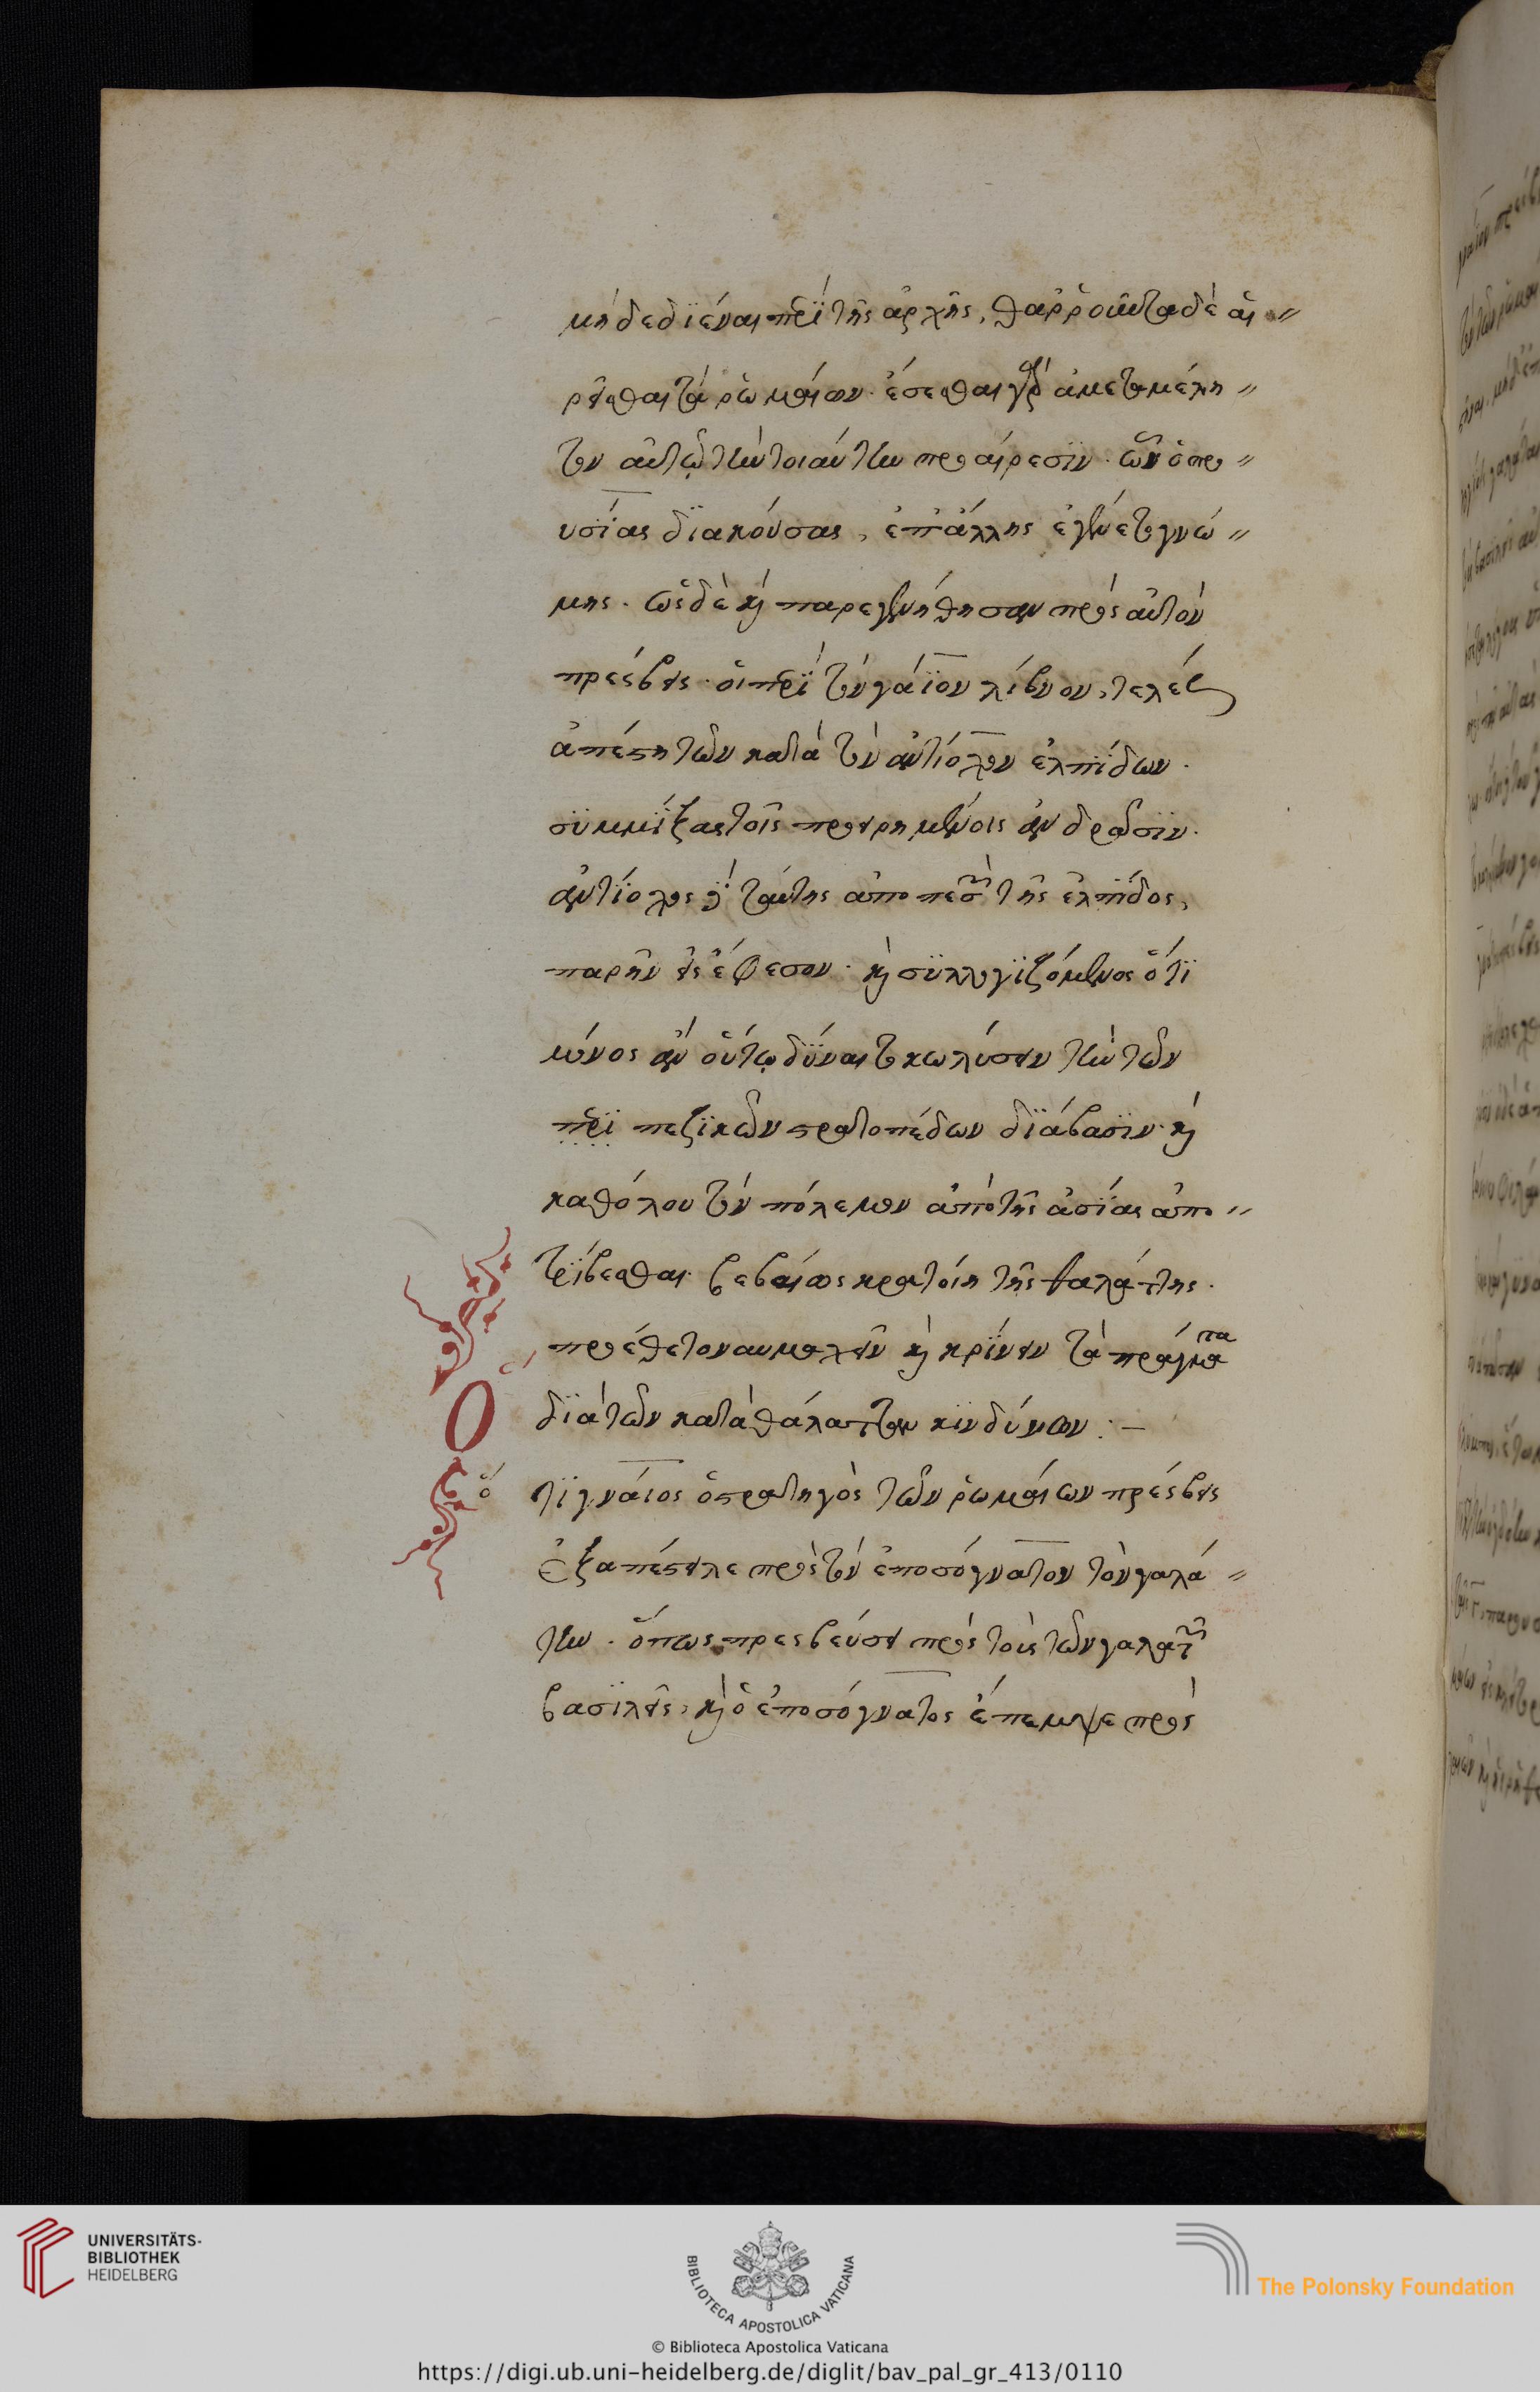 μὴ δεδϊέναι περὶ τῆς ἀρχῆς, θαρροῦντα δὲ αἱ〃
ρεῖσθαι τὰ ῥωμαίων. ἔσεσθαι γὰρ ἀμεταμέλη〃
τον αὐτῷ τὴν τοιαύτην προαίρεσϊν. ὧν ὁ προ〃
υσίας δϊακούσας, ἐπ' ἄλλης ἐγένετο γνώ〃
μης. ὡς δὲ καὶ παρεγενήθησαν πρὸς αὐτὸν
πρέσβεις. οἱ περὶ τὸν γάϊον λίβιον, τελέως
ἀπέστη τῶν κατὰ τὸν ἀντίοχον ἐλπϊδων.
συμμΐξας τοῖς προειρημένοις ἀνδράσϊν.
ἀντΐοχος δὲ ταύτης ἀποπεσὼν τῆς ἐλπΐδος,
παρῆν εἰς ἔφεσον. καὶ συλλογϊζόμενος ὅτϊ
μόνος ἂν οὕτω δύναιτο κωλύσειν τὴν τῶν
περϊ πεζϊκῶν στρατοπέδων δϊάβασϊν. καὶ
καθόλου τὸν πόλεμον ἀπὸ τῆς ἀσίας ἀπο〃
τρΐβεσθαι. βεβαίως κρατοίη τῆς θαλάττης.
προέθετο ναυμαχεῖν καὶ κρΐνειν τὰ πράγματα
δϊὰ τῶν κατὰ θάλατταν κϊνδύνων:–
Ὅτϊ γνάιος ὁ στρατηγὸς τῶν ῥωμαίων πρέσβεις
ἐξαπέστειλε πρὸς τὸν ἐποσόγνατον τὸν γαλά〃
την. ὅπως πρεσβεύση πρὸς τοὺς τῶν γαλατῶν
βασϊλεῖς, καὶ ὁ ἐποσόγνατος ἔπεμψε πρὸς
UNIVERSITÄTS-
BIBLIOTHEK
HEIDELBERG
BIBLIOTECA APOSTOLICA VATICANA
The Polonsky Foundation
© Biblioteca Apostolica Vaticana
https://digi.ub.uni-heidelberg.de/diglit/bav_pal_gr_413/0110